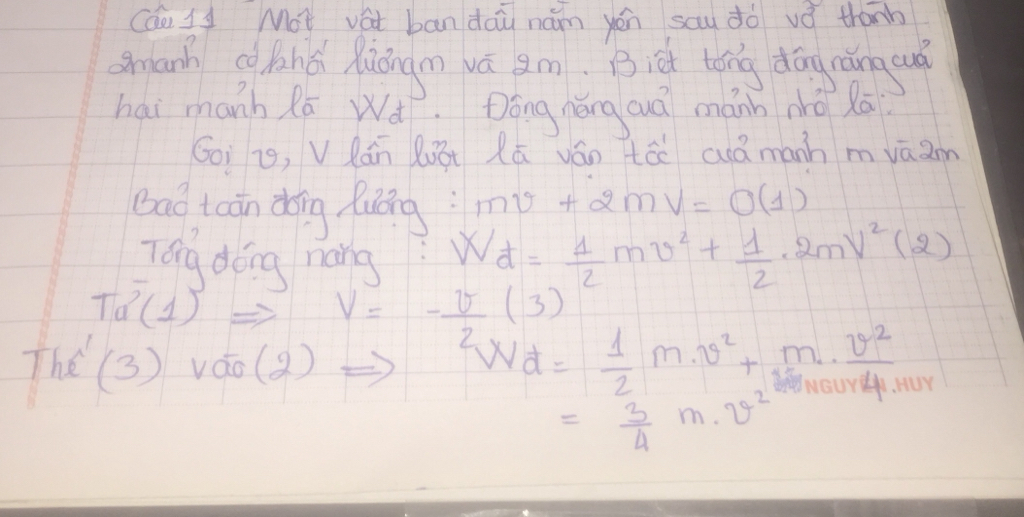 Câu 11 Một vật ban đầu nằm yên sau đó vỡ thành
2mảnh có khối lượng m và 2m. Biết tổng động năng của
hai mảnh là Wđ. Động năng của mảnh nhỏ là:
Gọi v, V lần lượt là vận tốc của mảnh m và 2m
Bảo toàn động lượng : mv + 2mV = 0(1)
Tổng động năng : Wđ = 1/2 mv² + 1/2 . 2mV² (2)
Từ (1) ⇒ V = -v/2 (3)
Thế (3) vào (2) ⇒ Wđ = 1/2 m.v² + m. v²/4
NGUYEN.HUY
= 3/4 m.v²